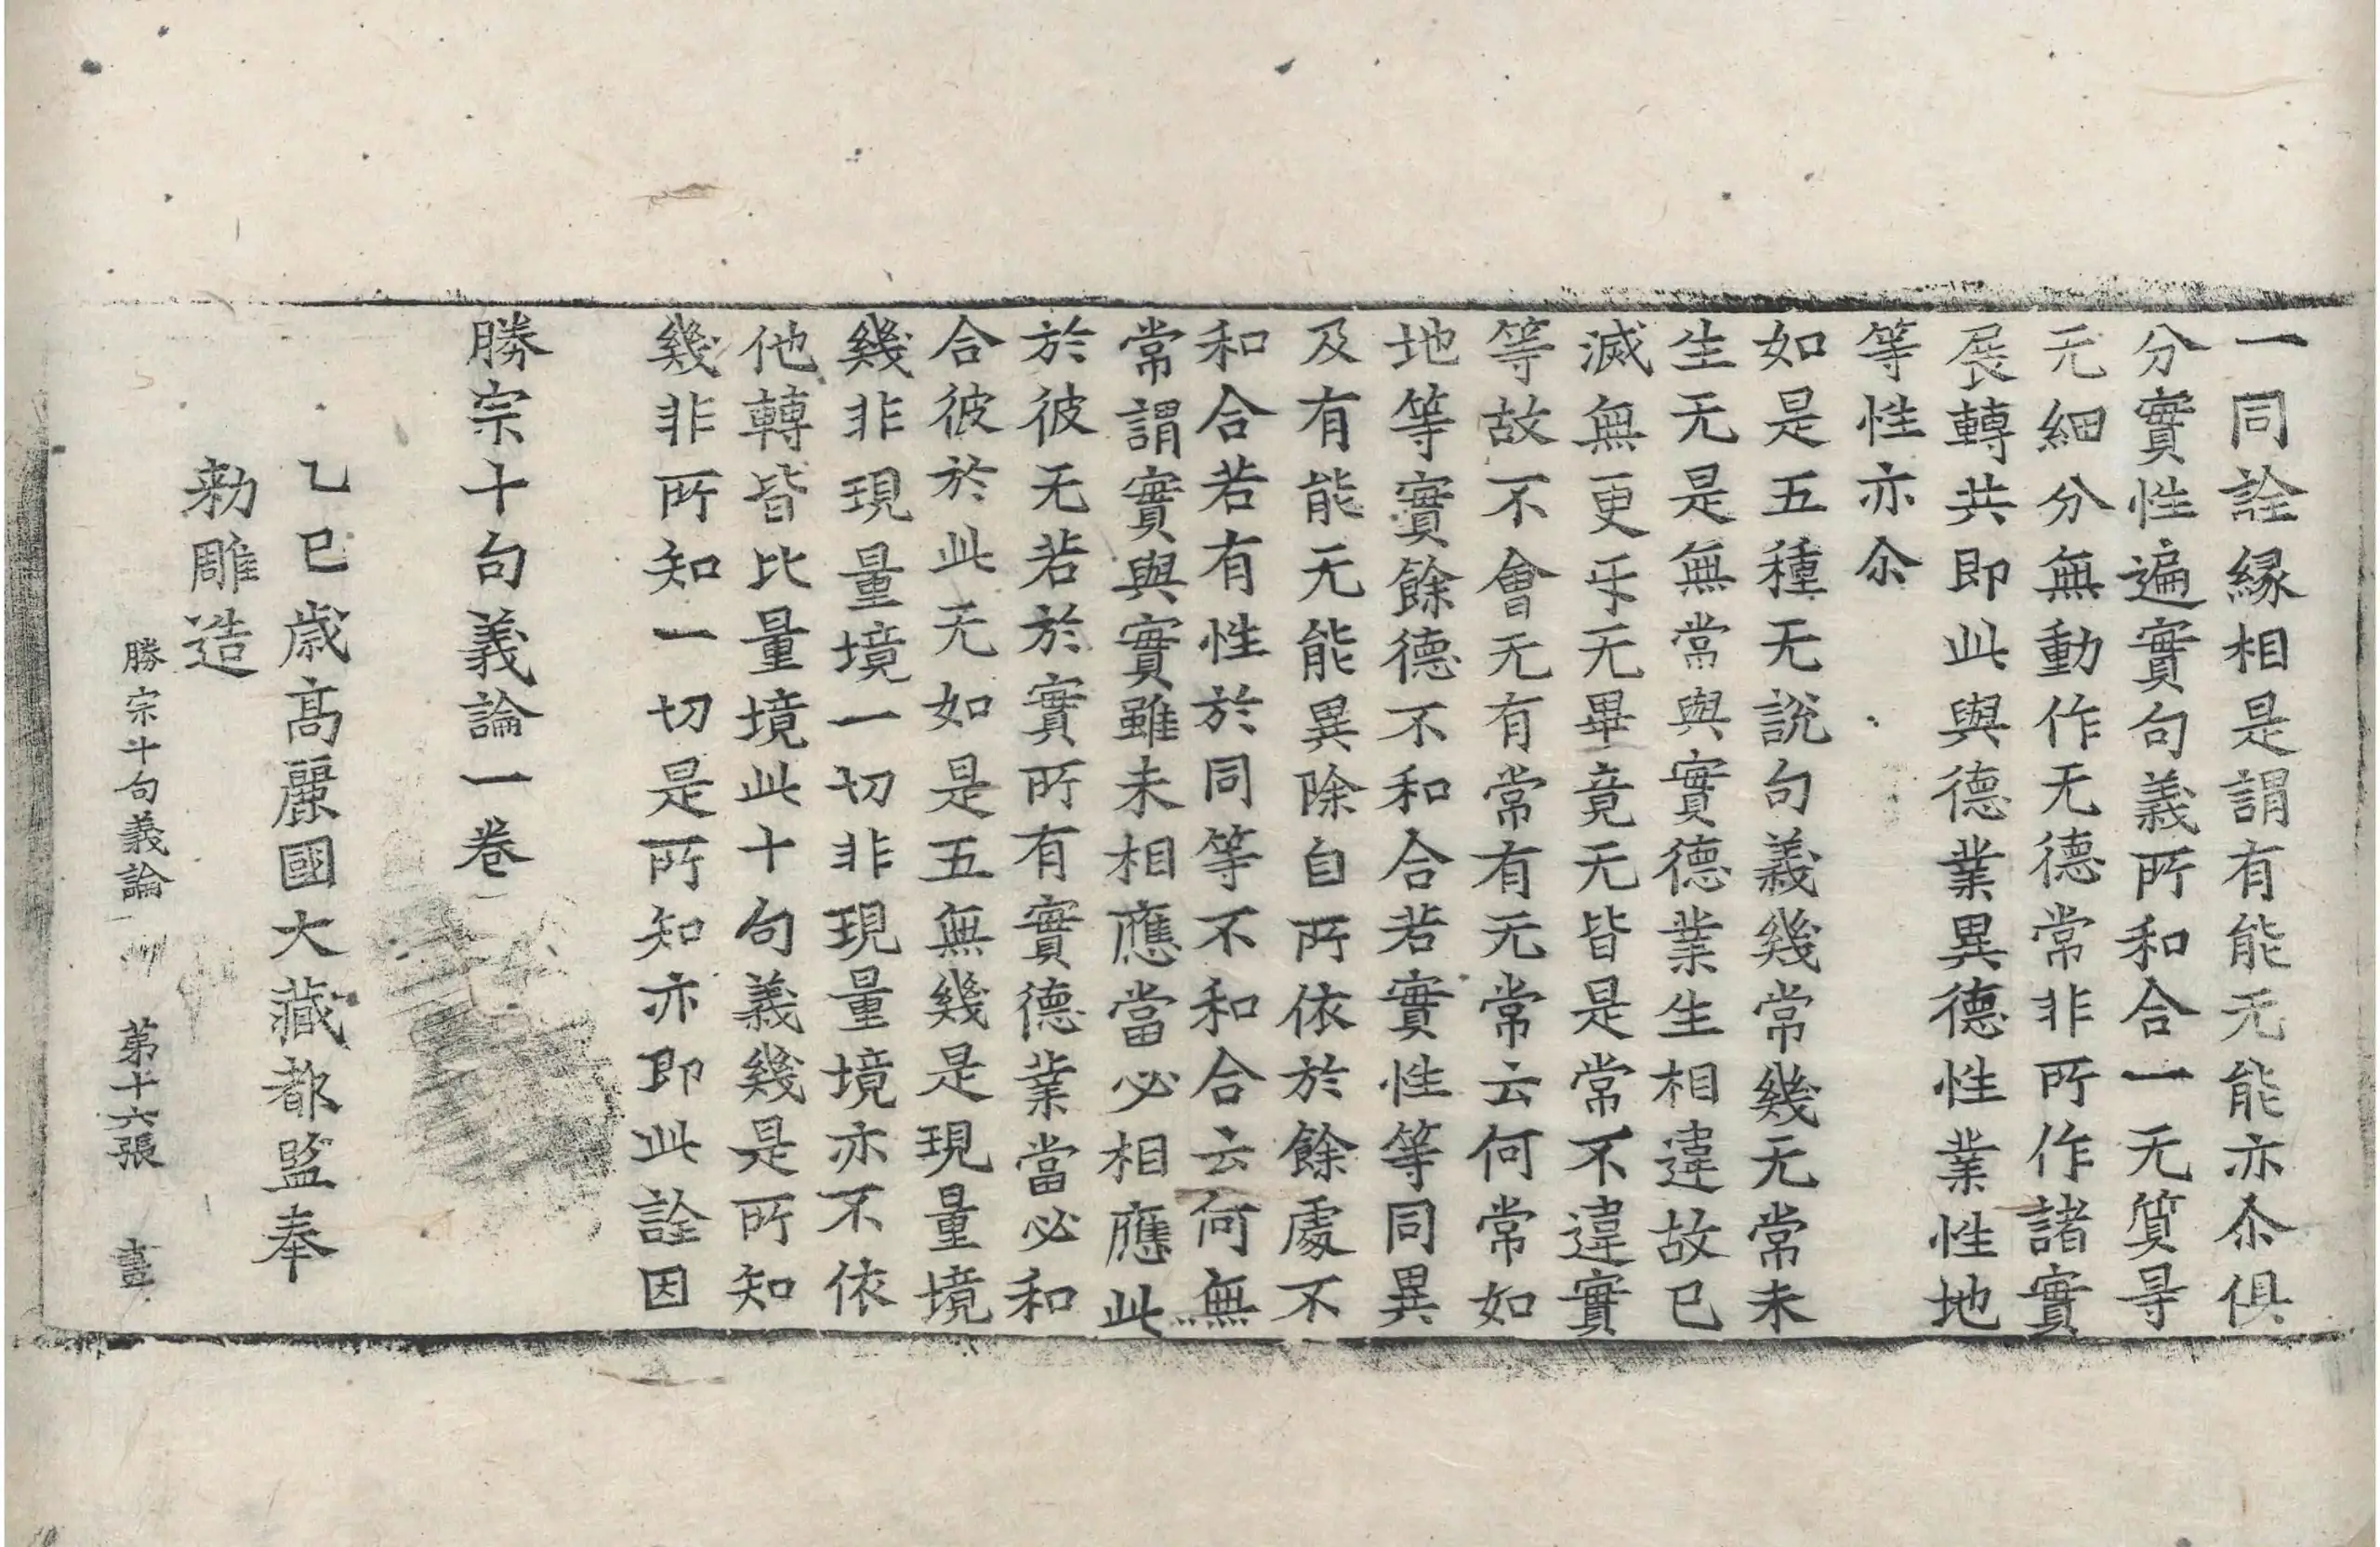 一同詮縁相是謂有能无能亦尒俱
分實性遍實句義所和合一无質㝵
无細分無動作无德常非所作諸實
展轉共即此與德業異德性業性地
等性亦尒
如是五種无說句義幾常幾无常未
生无是無常與實德業生相違故已
滅無更㸦无畢竟无皆是常不違實
等故不會无有常有无常云何常如
地等實餘德不和合若實性等同異
及有能无能異除自所依於餘處不
和合若有性於同等不和合云何無
常謂實與實雖未相應當必相應此
於彼无若於實所有實德業當必和
合彼於此无如是五無幾是現量境
幾非現量境一切非現量境亦不依
他轉皆比量境此十句義幾是所知
幾非所知一切是所知亦即此詮因
勝宗十句義論一卷
乙巳歳高麗國大藏都監奉
勑雕造
勝宗十句義論 第十六張 晝